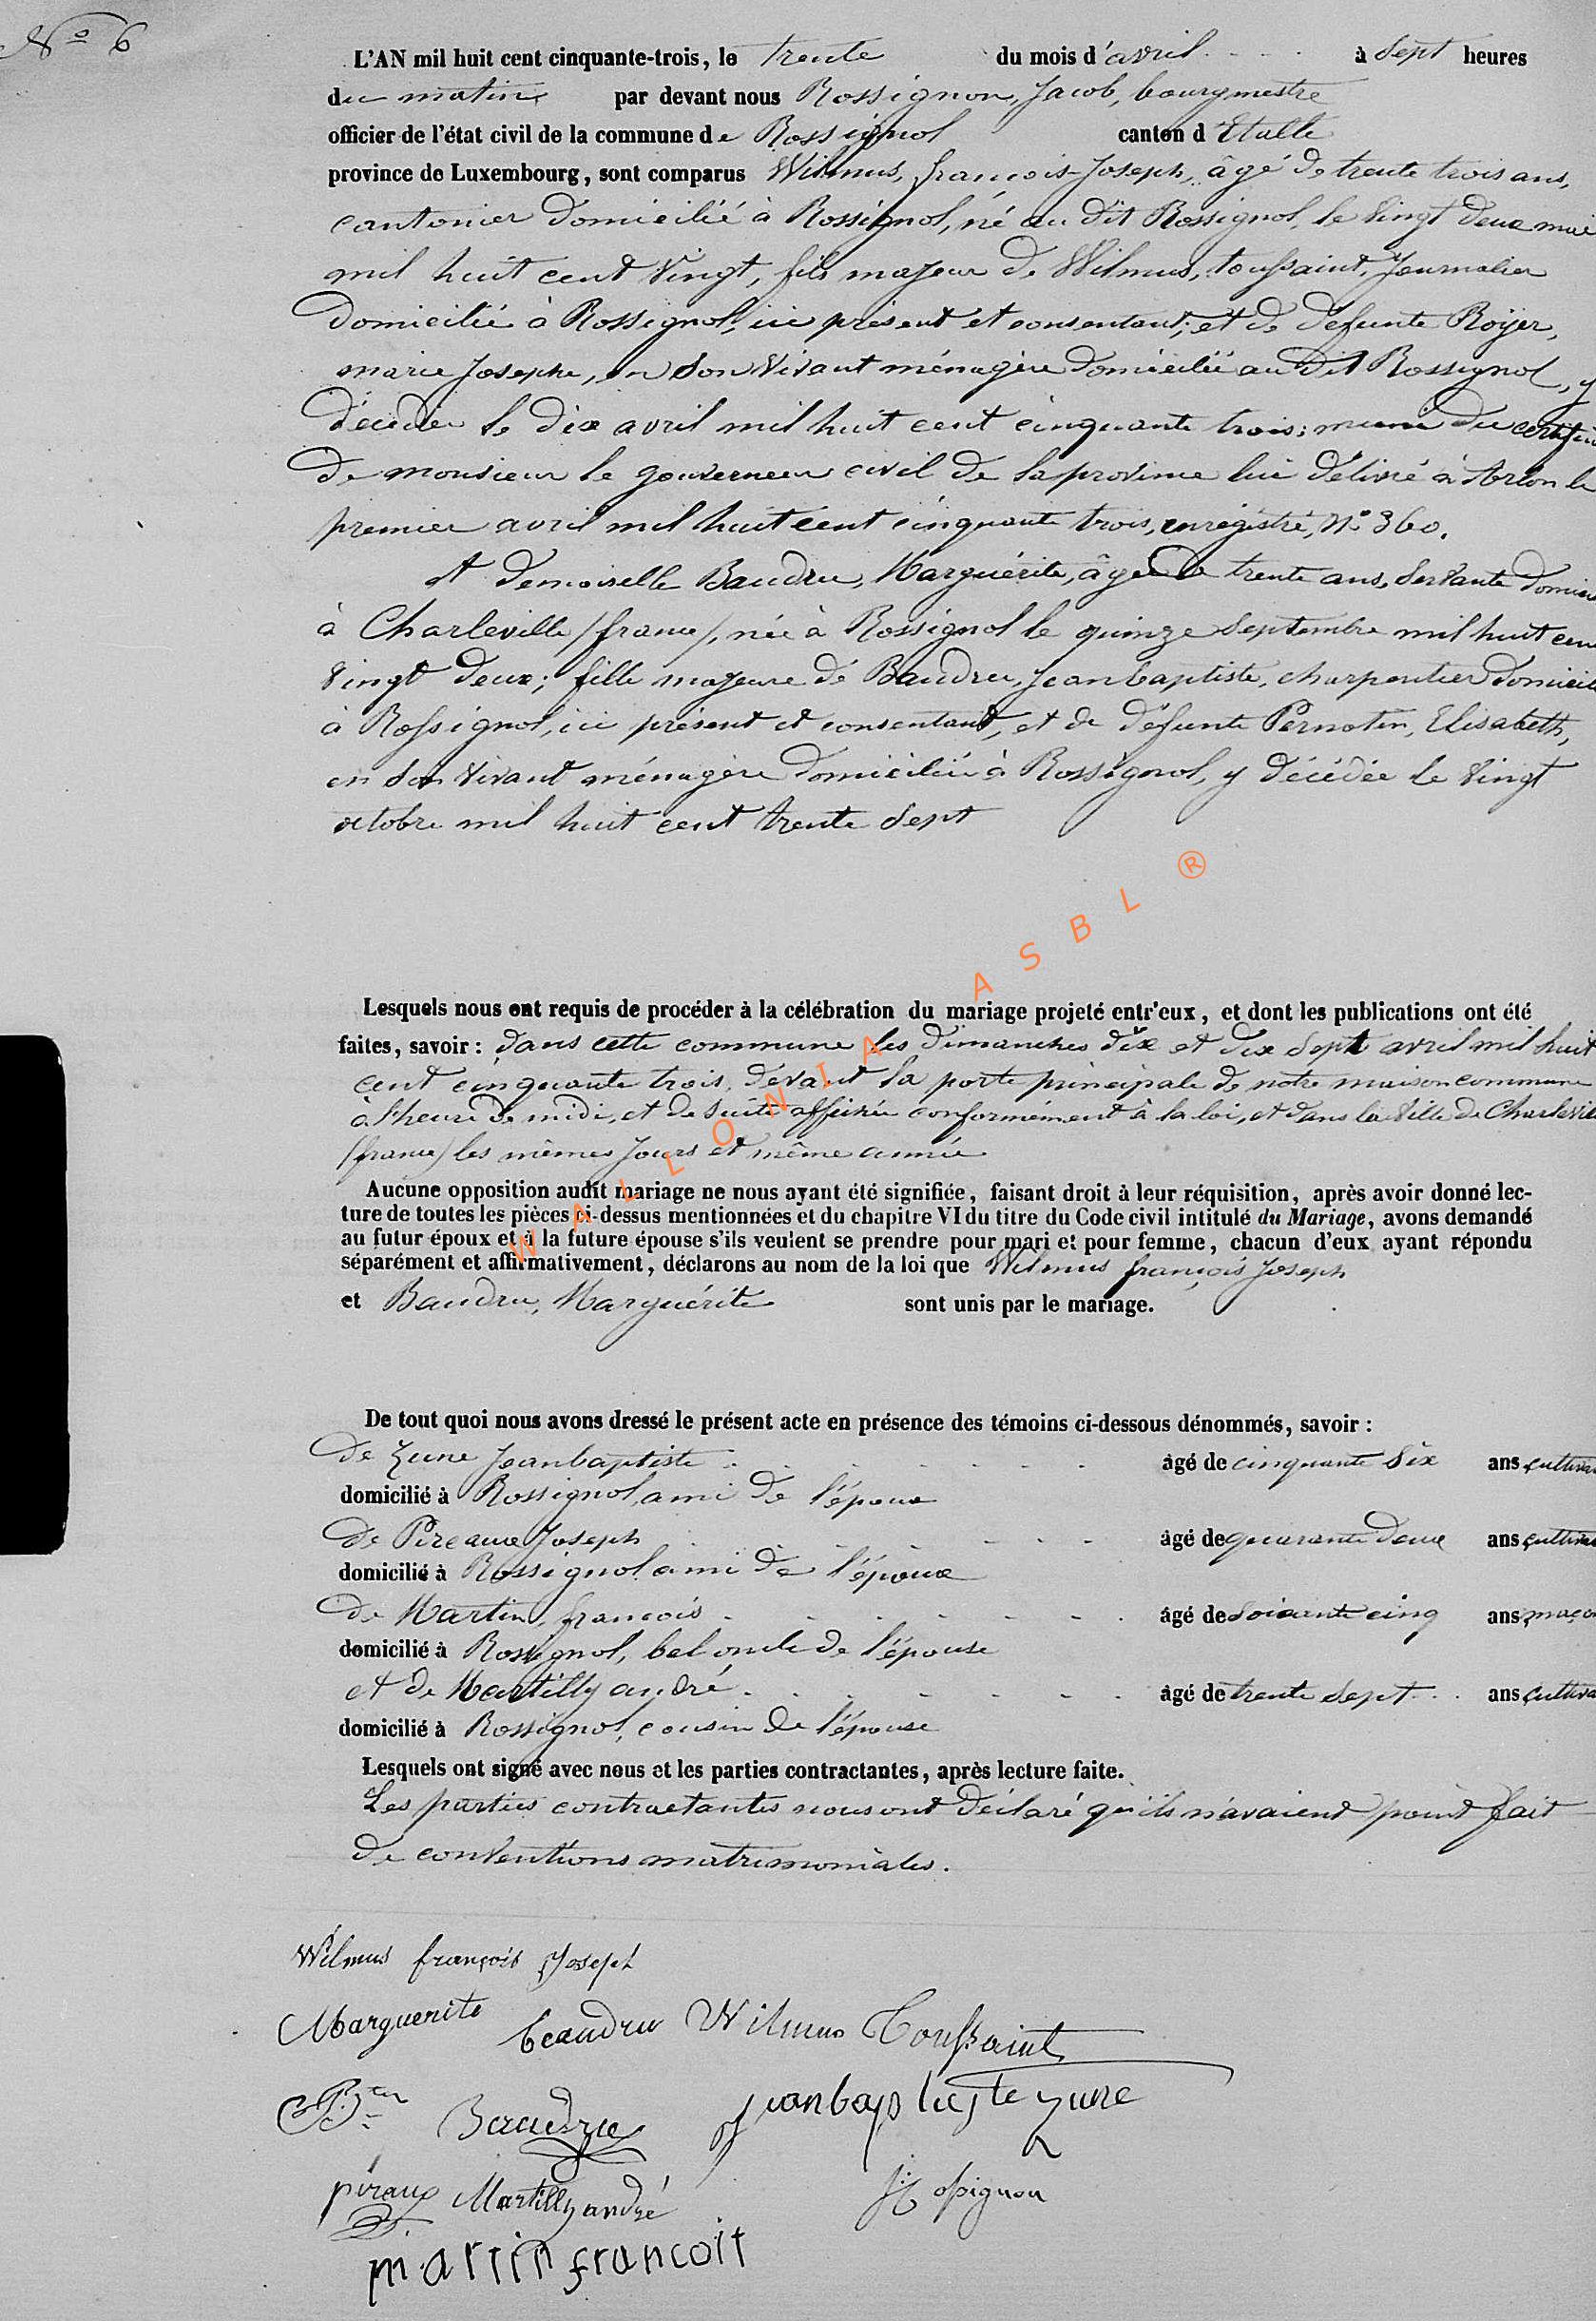 N° 6
L'AN mil huit cent cinquante-trois, le trente du mois d'avril à sept heures
du matin, par devant nous Rossignon, Jacob, bourgmestre
officier de l'état civil de la commune de Rossignol canton d'Etalle
province de Luxembourg, sont comparus Wilmus, françois-Joseph, âgé de trente trois ans,
cantonier domicilié à Rossignol, né au dit Rossignol, le vingt deux mai
mil huit cent vingt, fils majeur de Wilmus, toussaint, Journalier
domicilié à Rossignol, ici présent et consentant; et de defunte Royer,
marie Josephe, en son vivant ménagère domiciliée au dit Rossignol, y
décédée le dix avril mil huit cent cinquante trois; muni du certifi
de monsieur le gouverneur civil de la province lui délivré à Arlon le
premier avril mil huit cent cinquante trois, enrégistré, N° 360.
et demoiselle Baudru, Marguérite, âgée de trente ans, servante domici
à Charleville /france/, née à Rossignol le quinze septembre mil huit cen
vingt deux; fille majeure de Baudru, Jean baptiste, charpentier domicili
à Rossignol, ici présent et consentant, et de défunte Pernotin, Elisabeth,
en son vivant ménagère domiciliée à Rossignol, y décédée le vingt
octobre mil huit cent trente sept
Lesquels nous ont requis de procéder à la célébration du mariage projeté entr'eux, et dont les publications ont été
faites, savoir: dans cette commune les dimanches dix et dix sept avril mil huit
cent cinquante trois, devant la porte principale de notre maison commune
à l'heure de midi, et de suite affichée conformément à la loi, et dans la ville de Charlevil
/france/ les mêmes Jours et même année
Aucune opposition audit mariage ne nous ayant été signifiée, faisant droit à leur réquisition, après avoir donné lec-
ture de toutes les pièces ci-dessus mentionnées et du chapitre VI du titre du Code civil intitulé du Mariage, avons demandé
au futur époux et à la future épouse s'ils veulent se prendre pour mari et pour femme, chacun d'eux ayant répondu
séparément et affirmativement, déclarons au nom de la loi que Wilmus françois Joseph
et Baudru, Marguérite sont unis par le mariage.
De tout quoi nous avons dressé le présent acte en présence des témoins ci-dessous dénommés, savoir:
de Zune Jean baptiste âgé de cinquante six ans, cultiva
domicilié à Rossignol, ami de l'époux
de Pireaux Joseph âgé de quarante deux ans, cultiva
domicilié à Rossignol ami de l'époux
de Martin, françois âgé de soixante cinq ans, maço
domicilié à Rossignol, bel oncle de l'épouse
et de Martilly andré âgé de trente sept ans, cultiva
domicilié à Rossignol, cousin de l'épouse
Lesquels ont signé avec nous et les parties contractantes, après lecture faite.
Les parties contractantes nous ont déclaré qu'ils n'avaient point fait
de conventions matrimoniales.
Wilmus françois Joseph
Marguerite beaudru Wilmus Toussaint
Baudru Jean baptiste zune
piraux Martilly andré Rossignon
martin francoit
WALLONIA ASBL ®